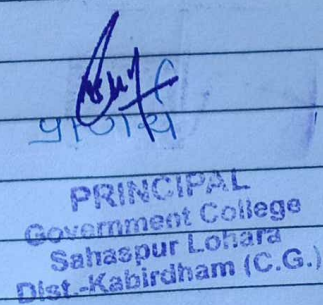 प्राचार्य
PRINCIPAL
Government College
Sahaspur Lohara
Dist.-Kabirdham (C.G.)